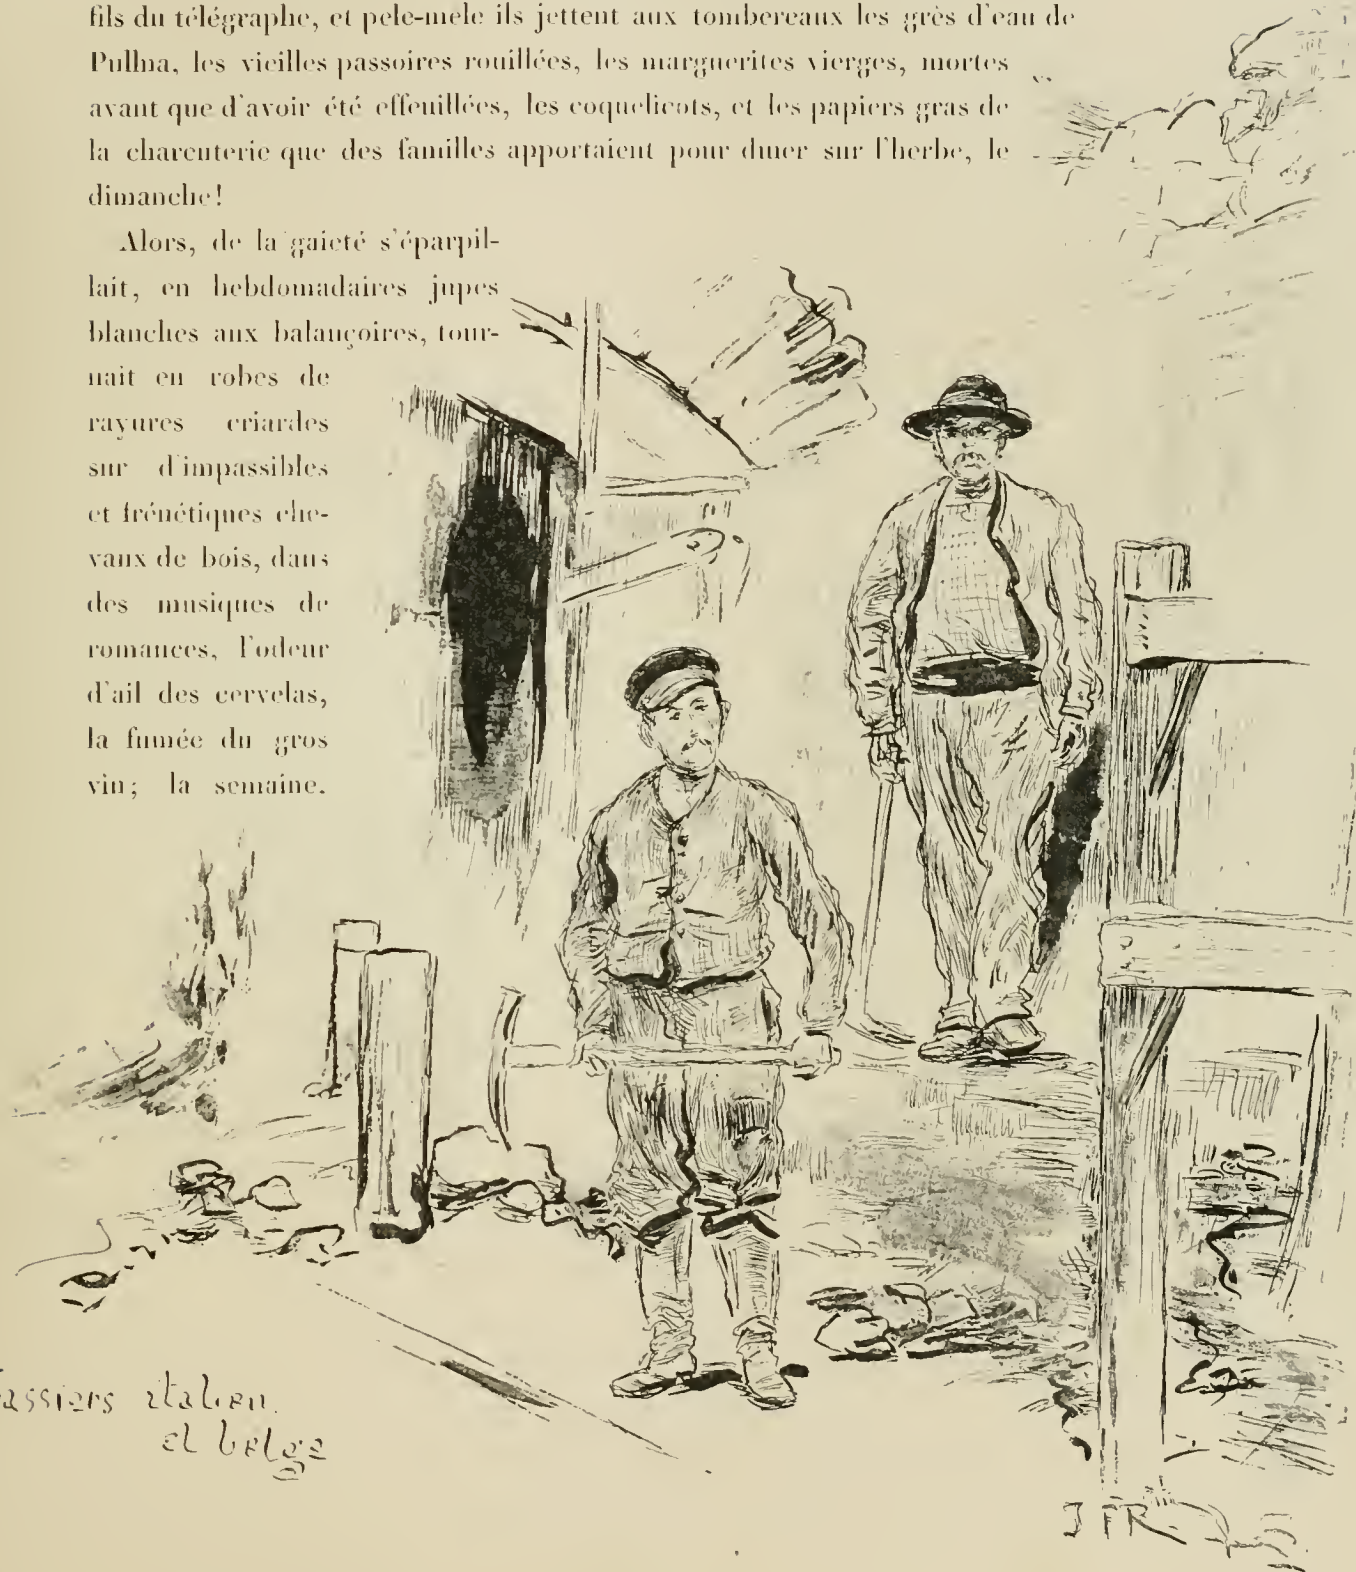 fils du télégraphe, et pele-mele ils jettent aux tombereaux les grès d'eau de
Pullna, les vieilles passoires rouillées, les marguerites vierges, mortes
avant que d'avoir été effeuillées, les coquelicots, et les papiers gras de
la charcuterie que des familles apportaient pour diner sur l'herbe, le
dimanche!
Alors, de la gaieté s'éparpil-
lait, en hebdomadaires jupes
blanches aux balançoires, tour-
nait en robes de
rayures criardes
sur d'impassibles
et frénétiques che-
vaux de bois, dans
des musiques de
romances, l'odeur
d'ail des cervelas,
la fumée du gros
vin; la semaine.
assiers italien
et belge
JFR